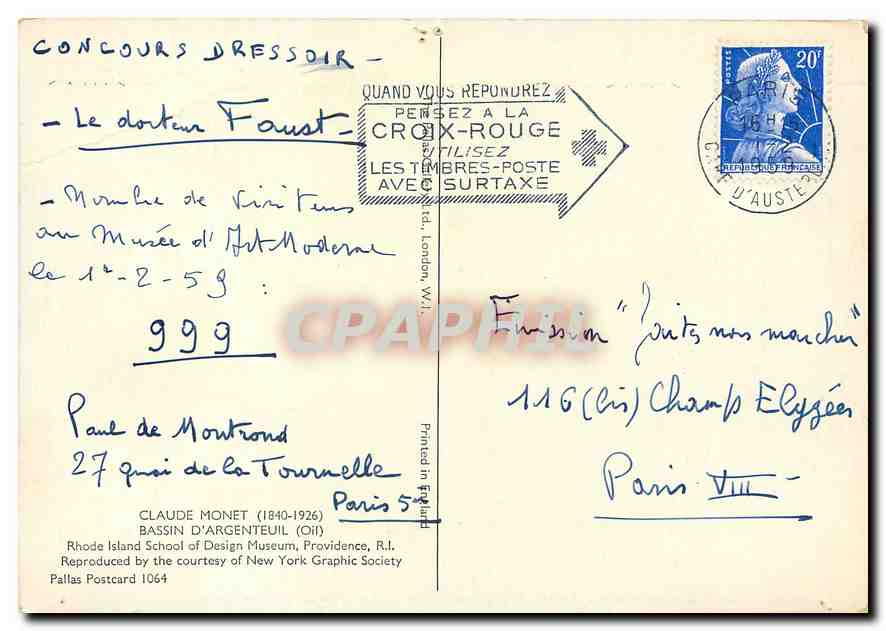 CONCOURS DRESSOIR -
- Le docteur Faust -
- Nombre de visiteurs
au Musée d'Art Moderne
le 1er-2-59 :
999
Paul de Montrond
27 quai de la Tournelle
Paris 5e
CLAUDE MONET (1840-1926)
BASSIN D'ARGENTEUIL (Oil)
Rhode Island School of Design Museum, Providence, R.I.
Reproduced by the courtesy of New York Graphic Society
Pallas Postcard 1064
Ltd., London, W.1.
Printed in England
QUAND VOUS REPONDREZ
PENSEZ A LA
CROIX-ROUGE
UTILISEZ
LES TIMBRES-POSTE
AVEC SURTAXE
POSTES
20F
REPUBLIQUE FRANÇAISE
PARIS
16H
GARE D'AUSTERLITZ
Emission "Faites nous marcher"
116 (bis) Champs Elyzées
Paris VIII -
CPAPHIL